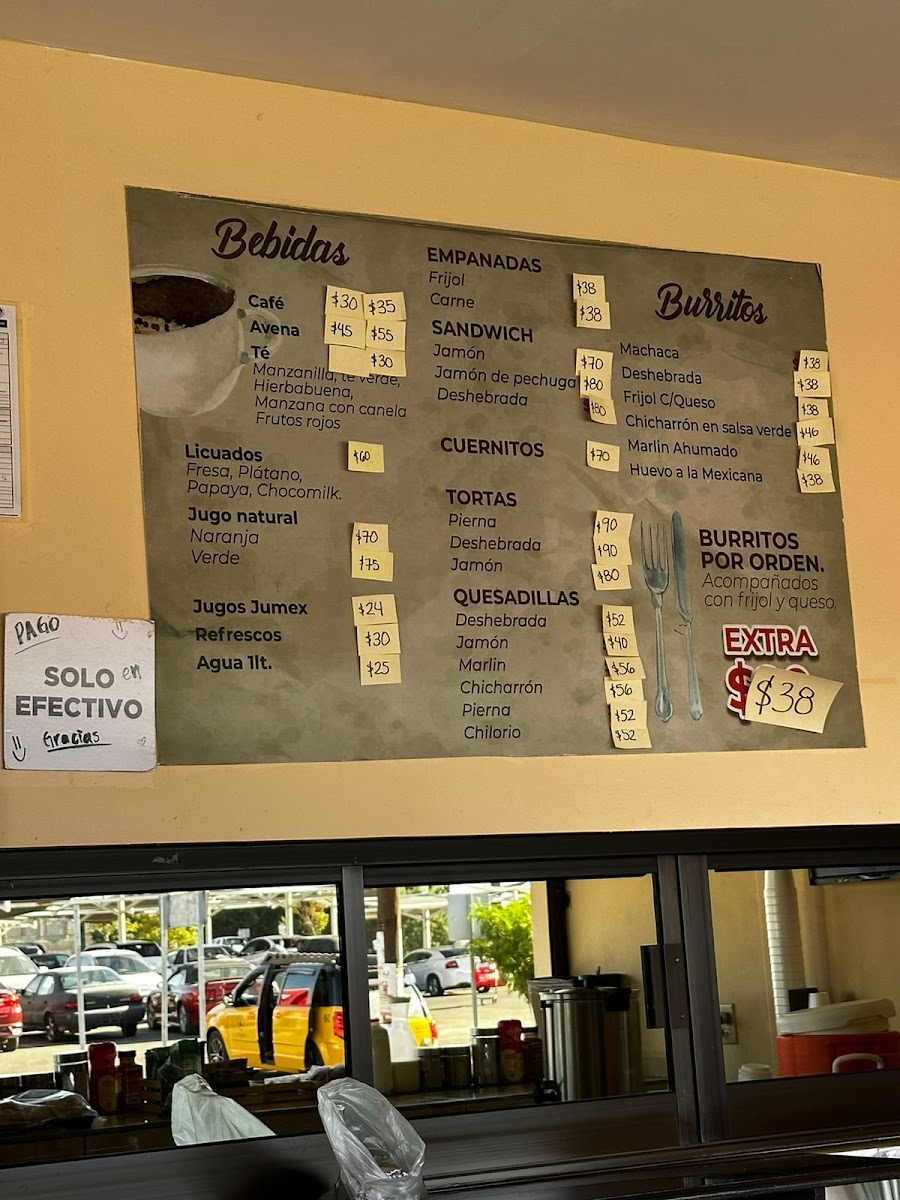 Bebidas
Café $30 $35
Avena $45 $55
Té $30
Manzanilla, té verde,
Hierbabuena,
Manzana con canela
Frutos rojos
Licuados $60
Fresa, Plátano,
Papaya, Chocomilk.
Jugo natural
Naranja $70
Verde $75
Jugos Jumex $24
Refrescos $30
Agua 1lt. $25
EMPANADAS
Frijol $38
Carne $38
SANDWICH
Jamón $70
Jamón de pechuga $80
Deshebrada $80
CUERNITOS $70
TORTAS
Pierna $90
Deshebrada $90
Jamón $80
QUESADILLAS
Deshebrada $52
Jamón $40
Marlin $56
Chicharrón $56
Pierna $52
Chilorio $52
Burritos
Machaca $38
Deshebrada $38
Frijol C/Queso $38
Chicharrón en salsa verde $46
Marlin Ahumado $46
Huevo a la Mexicana $38
BURRITOS
POR ORDEN.
Acompañados
con frijol y queso.
EXTRA
$38
PAGO
SOLO en
EFECTIVO
Gracias